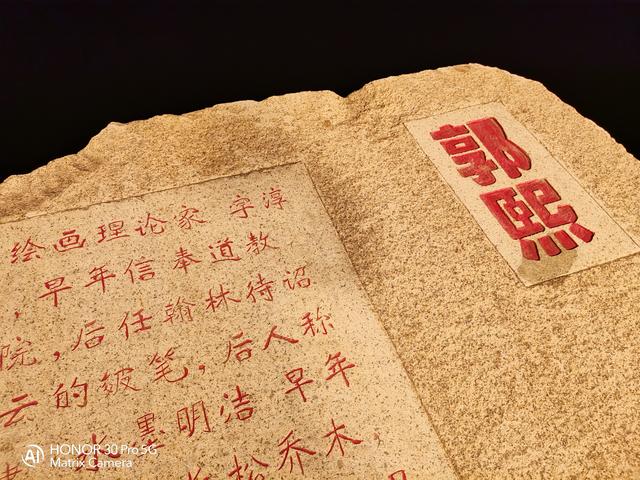 郭
熙
绘画理论家 字淳
，早年信奉道教
院，后任翰林待诏
云的皴笔，后人称
水墨明洁 早年
松乔木
HONOR 30 Pro 5G
Matrix Camera